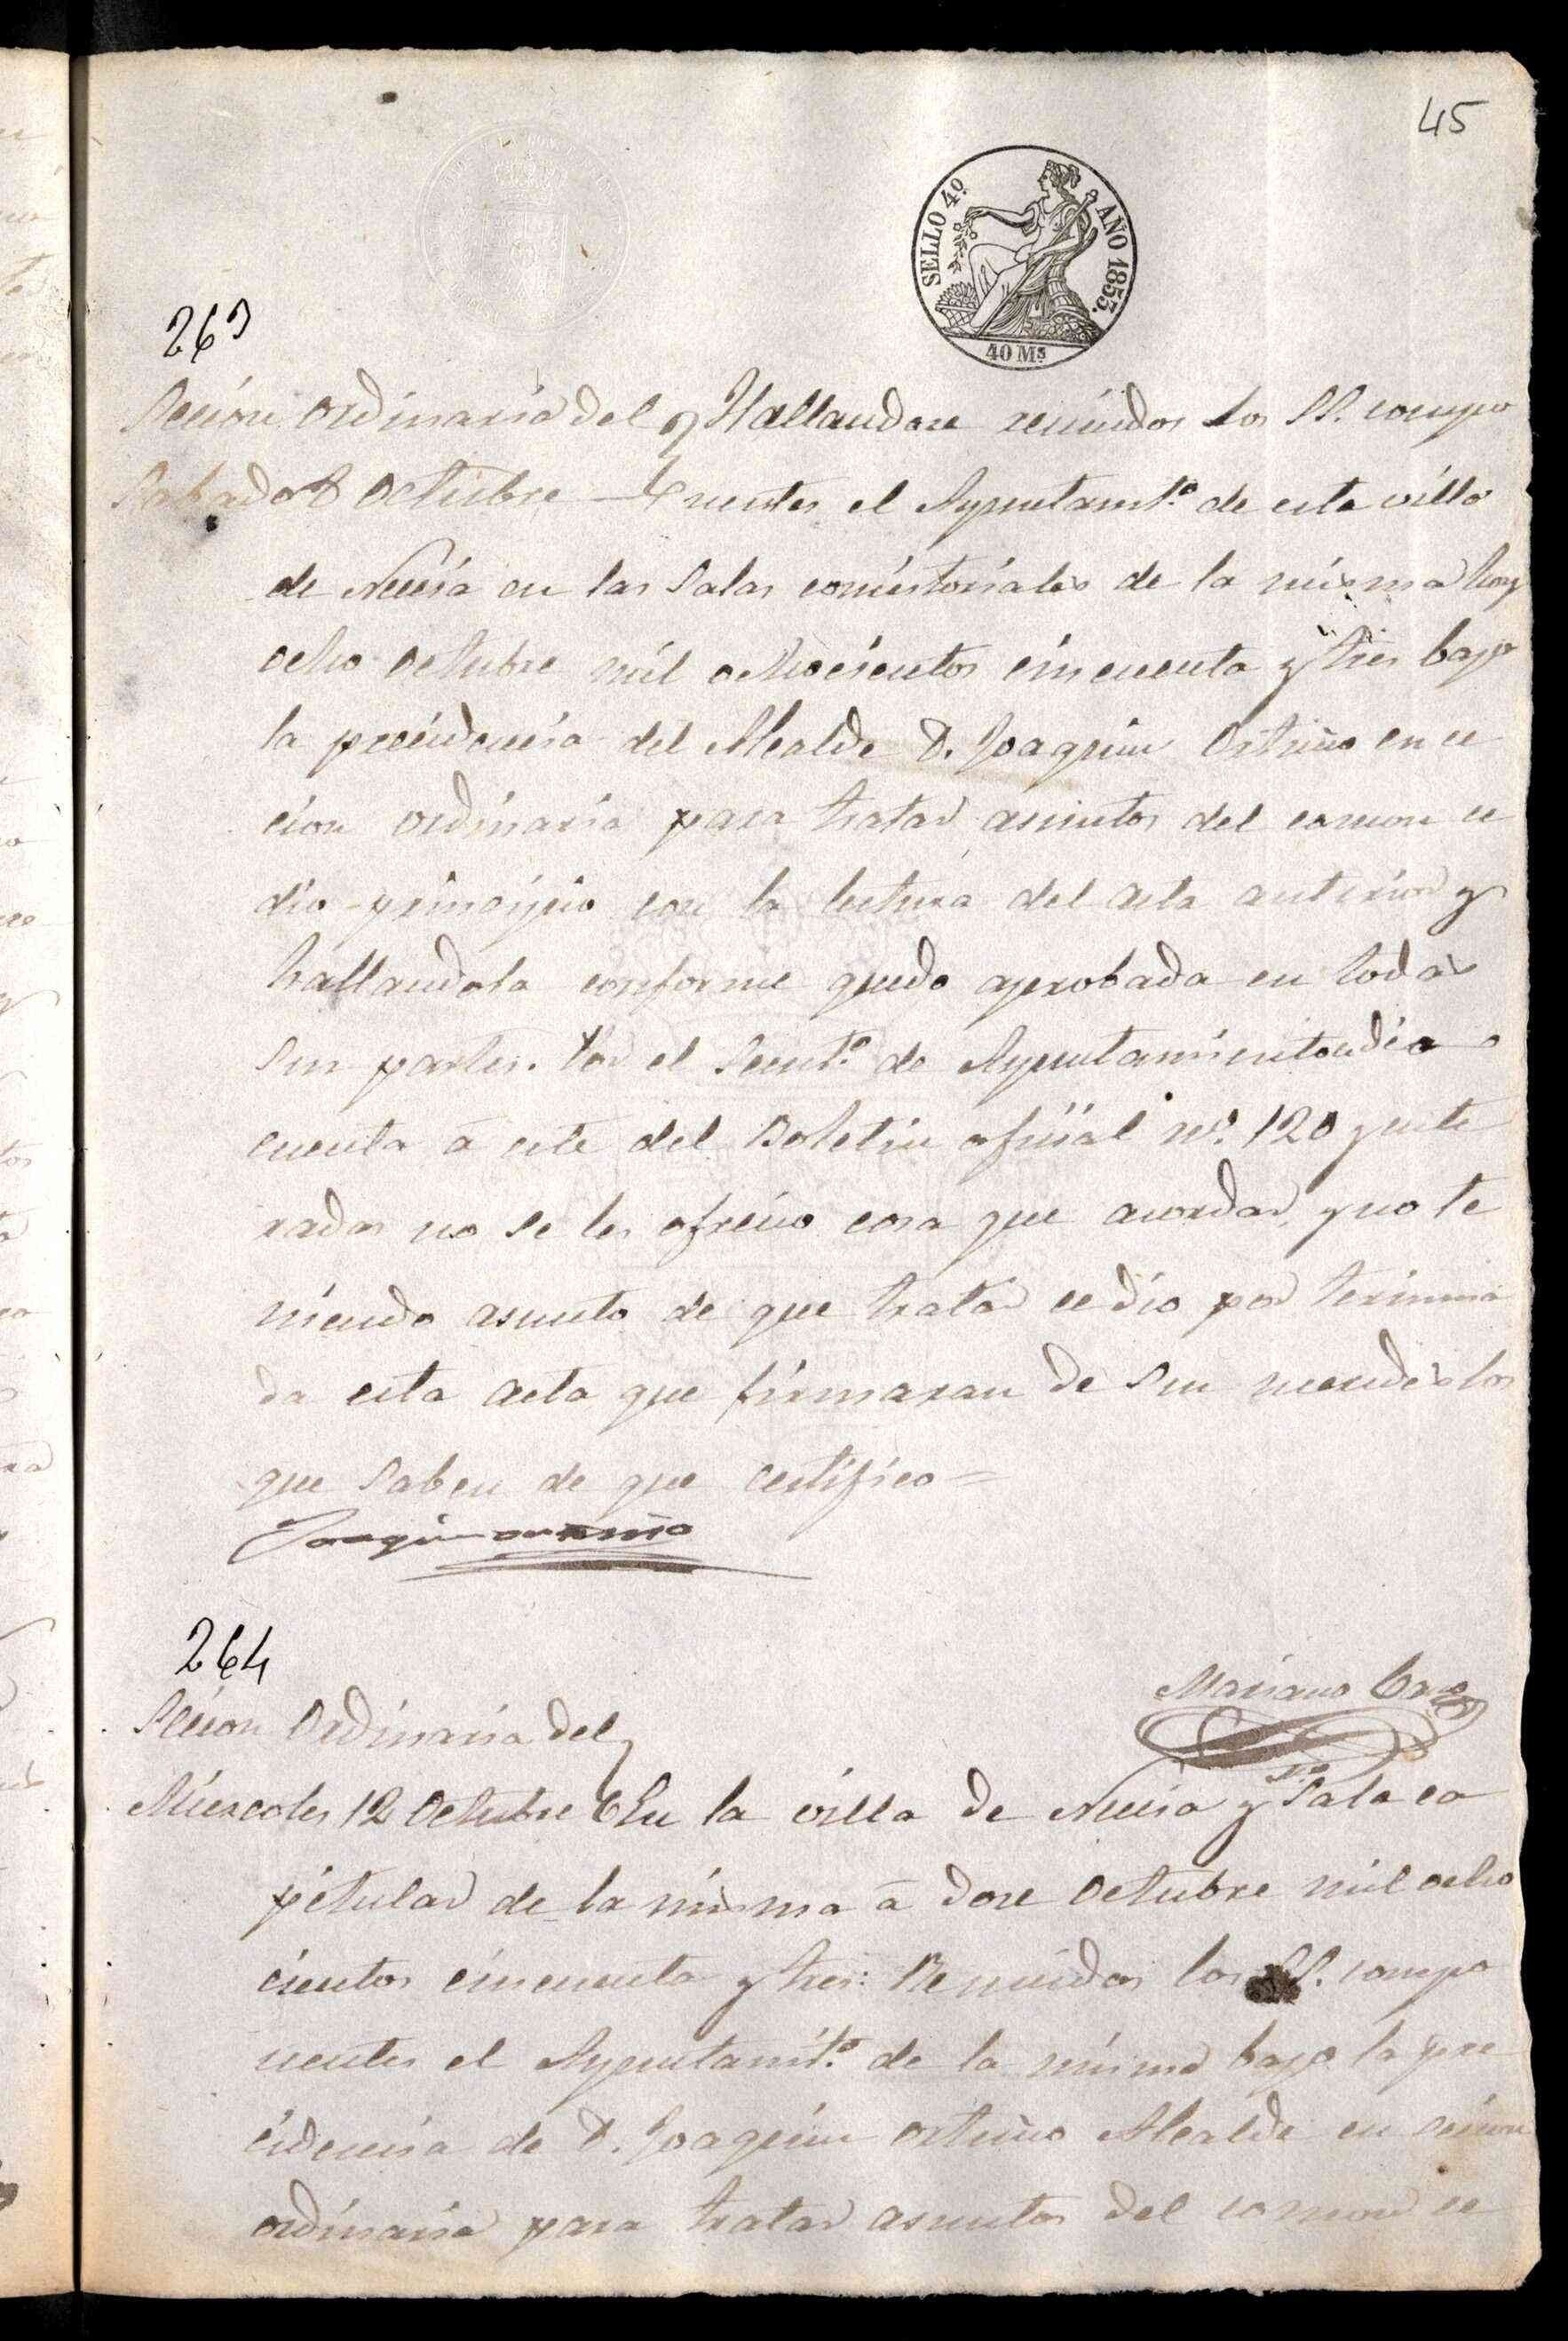 45
SELLO 4º. AÑO 1853.
40 Ms
263
Secion ordinaria del Hallandose reunidos los SS. compo
Sabado 8 Octubre nentes el Ayuntamtº. de esta villa
de Nucia en las Salas concistoriales de la misma hoy
ocho Octubre mil ochocientos cincuenta y tres bajo
la precidencia del Alcalde D. Joaquin Ortuño en ce
cion ordinaria para tratar asuntos del comun ce
dio principio con la lectura del acta anterior y
hallandola conforme quedo aprobada en todas
sus partes. Por el Secretº. de Ayuntamiento dio
cuenta á este del Boletin oficial nº. 120 y ente
rados no se les ofrecio cosa que acordar, y no te
niendo asunto de que tratar ce dio por termina
da esta acta que firmaran de sus mercedes los
que Saben de que certifico =
Joaquin ortuño
264
Mariano
Secion Ordinaria del
Miercoles 12 Octubre En la villa de Nucia y Sala ca
pitular de la misma á doce Octubre mil ocho
cientos cincuenta y tres: Reunidos los SS. compo
nentes el Ayuntamtº. de la misma bajo la pre
cidencia de D. Joaquin ortuño Alcalde en secion
ordinaria para tratar asuntos del comun ce